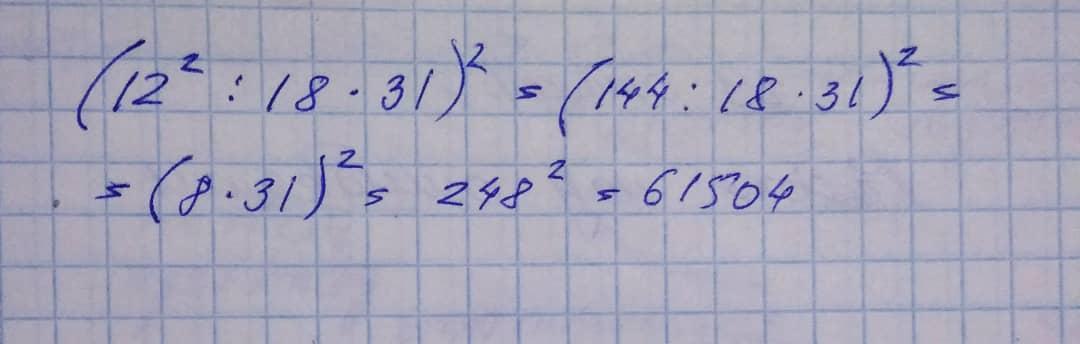 (12² : 18 · 31)² = (144 : 18 · 31)² =
= (8 · 31)² = 248² = 61504